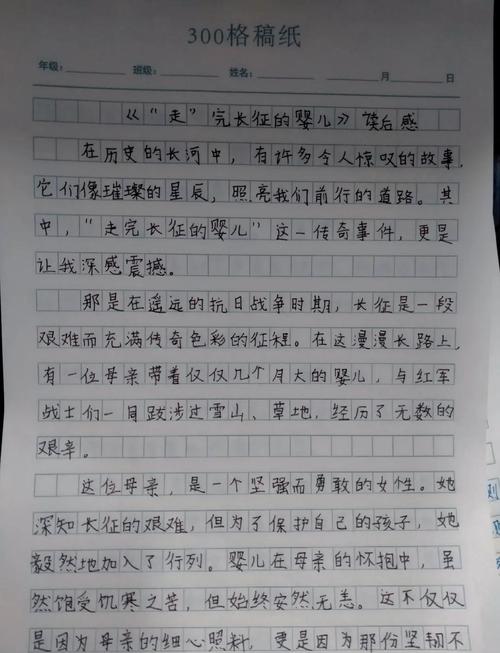 300格稿纸
年级: 班级: 姓名: 月 日
《“走”完长征的婴儿》读后感
在历史的长河中，有许多令人惊叹的故事，
它们像璀璨的星辰，照亮我们前行的道路。其
中，“走完长征的婴儿”这一传奇事件，更是
让我深感震撼。
那是在遥远的抗日战争时期，长征是一段
艰难而充满传奇色彩的征程。在这漫漫长路上，
有一位母亲带着仅仅几个月大的婴儿，与红军
战士们一同跋涉过雪山、草地，经历了无数的
艰辛。
这位母亲，是一个坚强而勇敢的女性。她
深知长征的艰难，但为了保护自己的孩子，她
毅然地加入了行列。婴儿在母亲的怀抱中，虽
然饱受饥寒之苦，但始终安然无恙。这不仅仅
是因为母亲的细心照料，更是因为那份坚韧不